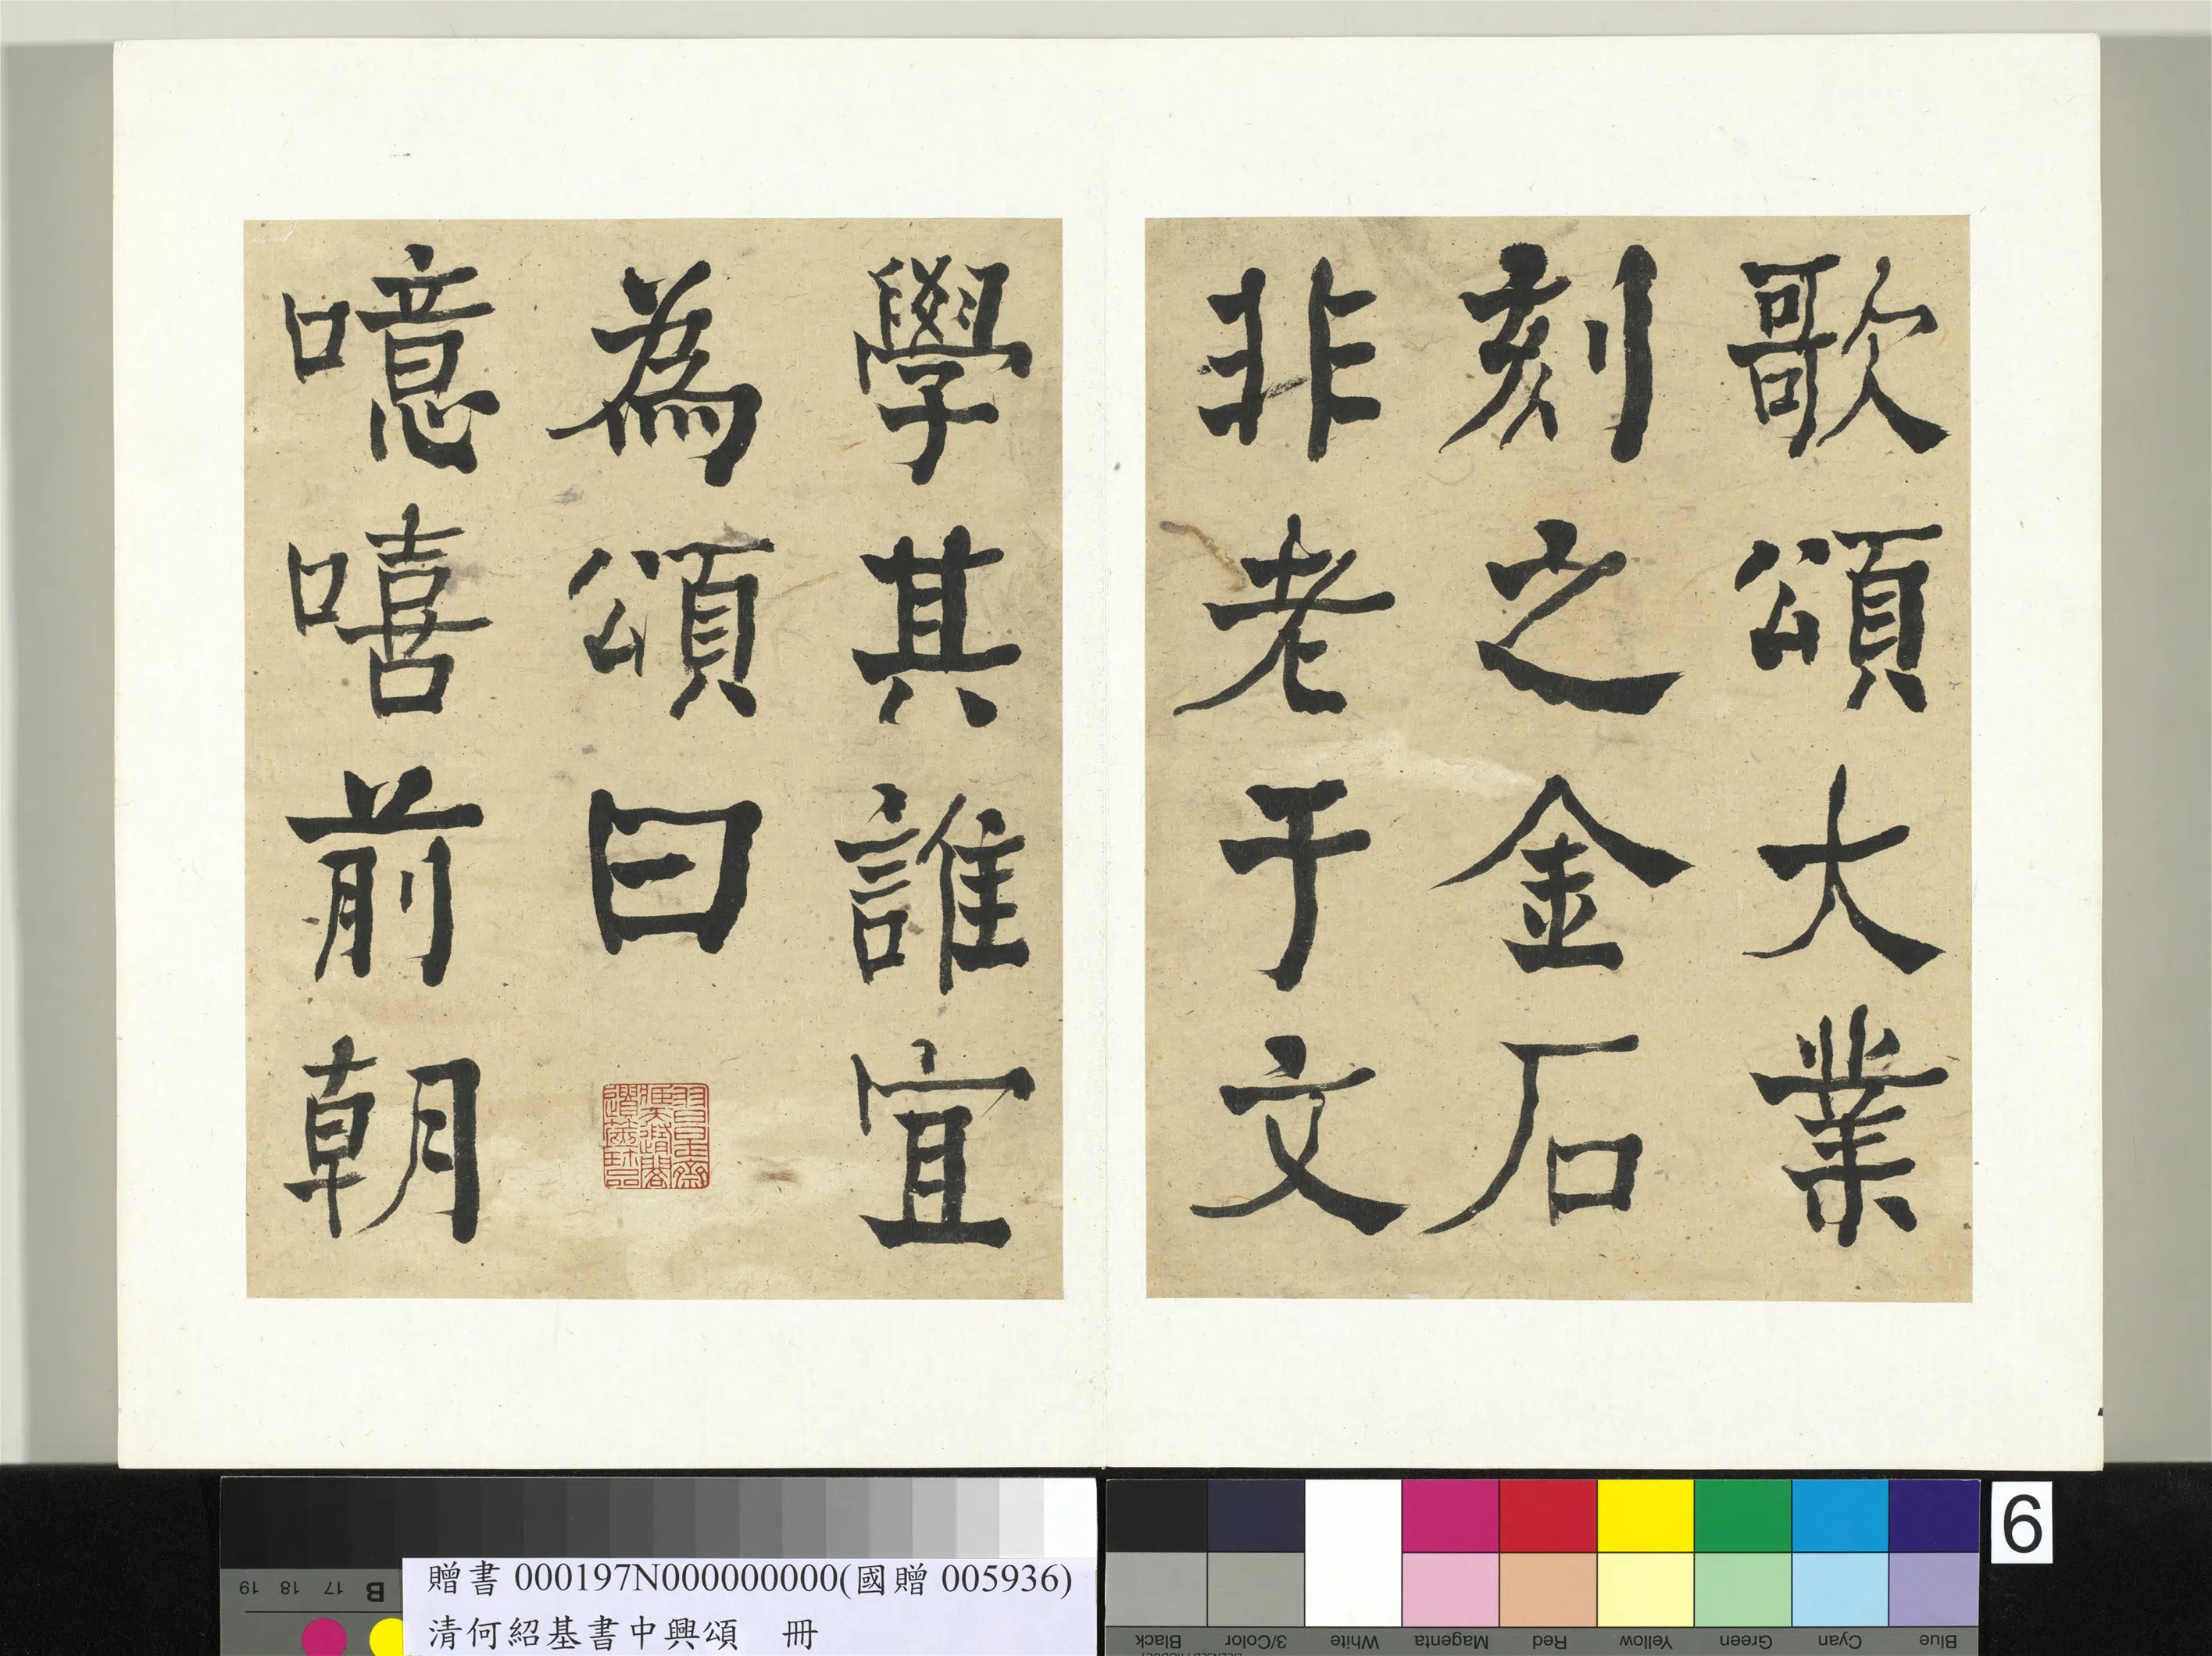 歌頌大業
刻之金石
非老于文
學其誰宜
為頌曰
噫嘻前朝
贈書 000197N000000000(國贈 005936)
清何紹基書中興頌 冊
6
19 18 17 B
Black 3/Color White Magenta Red Yellow Green Cyan Blue